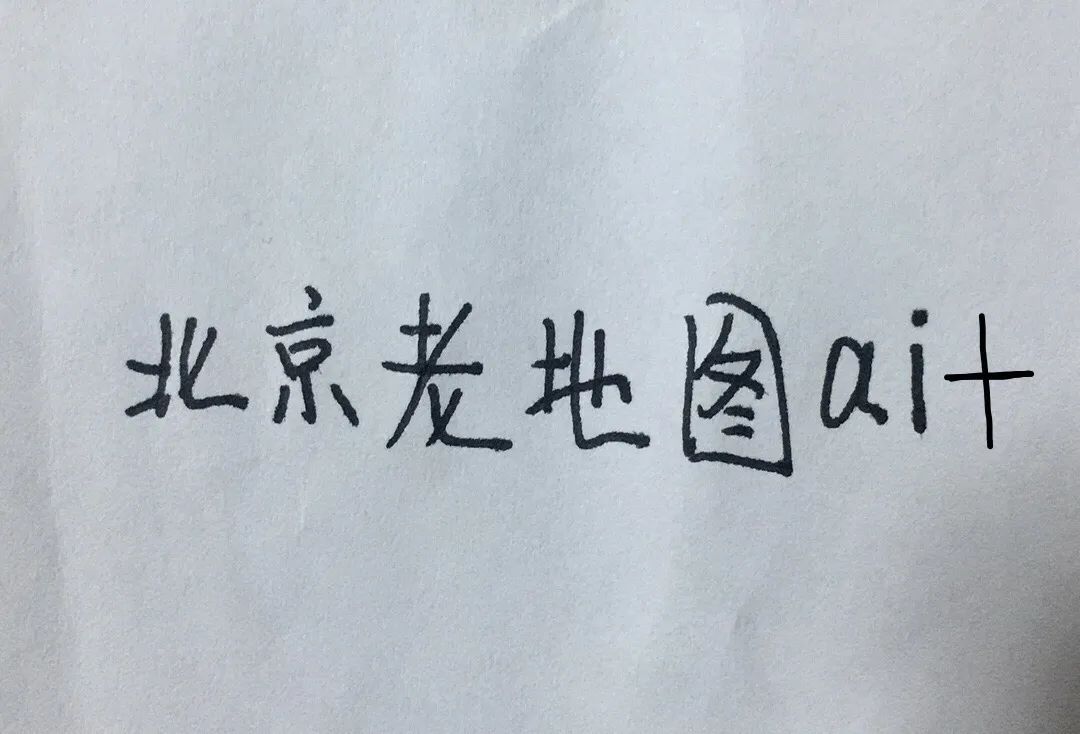 北京老地图ai+